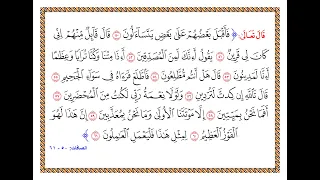 قَالَ تَعَالَىٰ: ﴿ فَأَقْبَلَ بَعْضُهُمْ عَلَىٰ بَعْضٍ يَتَسَاءَلُونَ ٥٠ قَالَ قَائِلٌ مِّنْهُمْ إِنِّي
كَانَ لِي قَرِينٌ ٥١ يَقُولُ أَءِنَّكَ لَمِنَ الْمُصَدِّقِينَ ٥٢ أَءِذَا مِتْنَا وَكُنَّا تُرَابًا وَعِظَامًا
أَءِنَّا لَمَدِينُونَ ٥٣ قَالَ هَلْ أَنتُم مُّطَّلِعُونَ ٥٤ فَاطَّلَعَ فَرَءَاهُ فِي سَوَاءِ الْجَحِيمِ ٥٥
قَالَ تَاللَّهِ إِن كِدتَّ لَتُرْدِينِ ٥٦ وَلَوْلَا نِعْمَةُ رَبِّي لَكُنتُ مِنَ الْمُحْضَرِينَ ٥٧
أَفَمَا نَحْنُ بِمَيِّتِينَ ٥٨ إِلَّا مَوْتَتَنَا الْأُولَىٰ وَمَا نَحْنُ بِمُعَذَّبِينَ ٥٩ إِنَّ هَٰذَا لَهُوَ
الْفَوْزُ الْعَظِيمُ ٦٠ لِمِثْلِ هَٰذَا فَلْيَعْمَلِ الْعَامِلُونَ ٦١ ﴾ الصافات: ٥٠ - ٦١